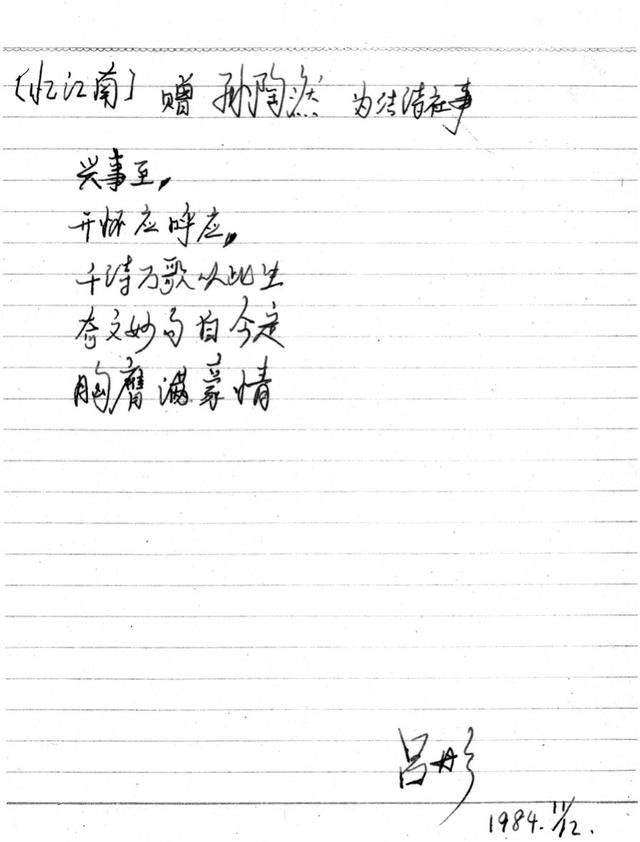 〔忆江南〕 赠 孙陶然 为结诗社事
兴事至，
开怀应呼应，
千诗万歌从此生
奇文妙句自今定
胸膺满豪情
吕彤
1984.11/12.